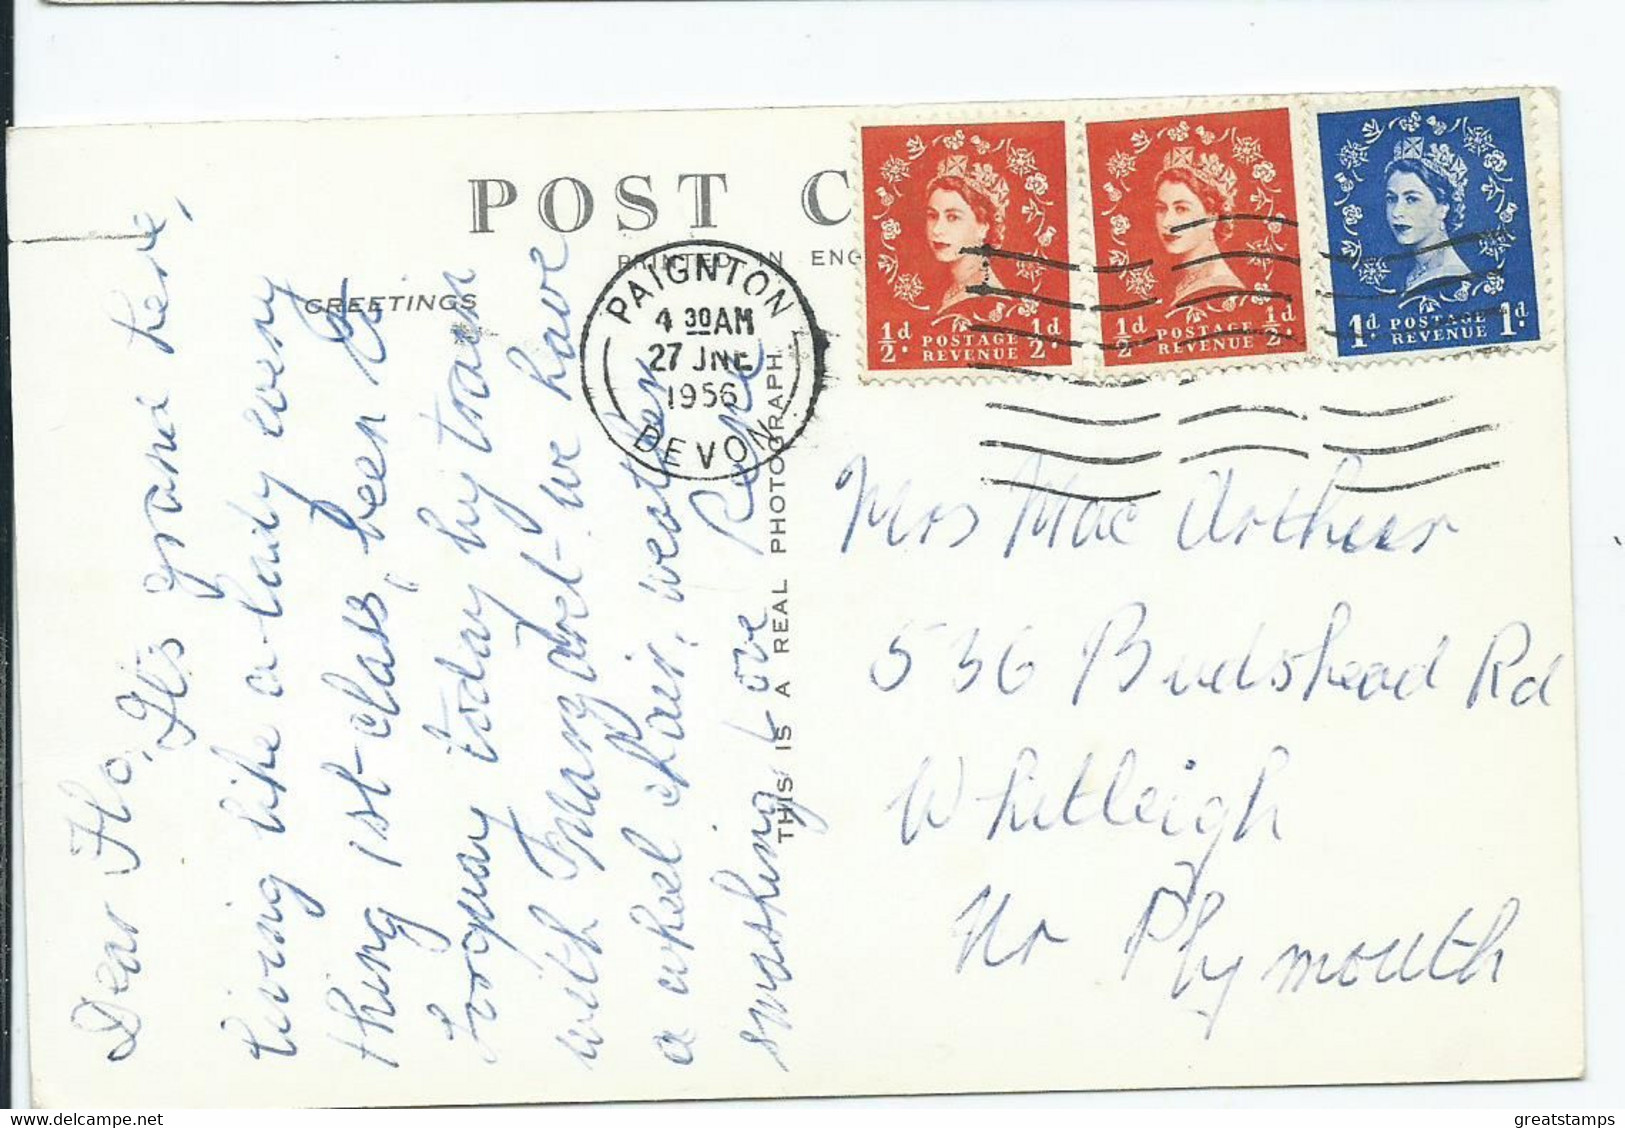 POST C
PRINTED IN ENG
GREETINGS
PAIGNTON
4 30 AM
27 JNE
1956
DEVON
½d. ½d.
POSTAGE
REVENUE
½d. ½d.
POSTAGE
REVENUE
1d. 1d.
POSTAGE
REVENUE
Dear Flo,
It's grand here,
living like a lady every
thing 1st-class, been to
Torquay today by train
with Margaret - we have
a wheel chair, weather
smashing Love Rene
THIS IS A REAL PHOTOGRAPH.
Mrs Mac Arthur
536 Budshead Rd
Whitleigh
Nr Plymouth
greatstamps